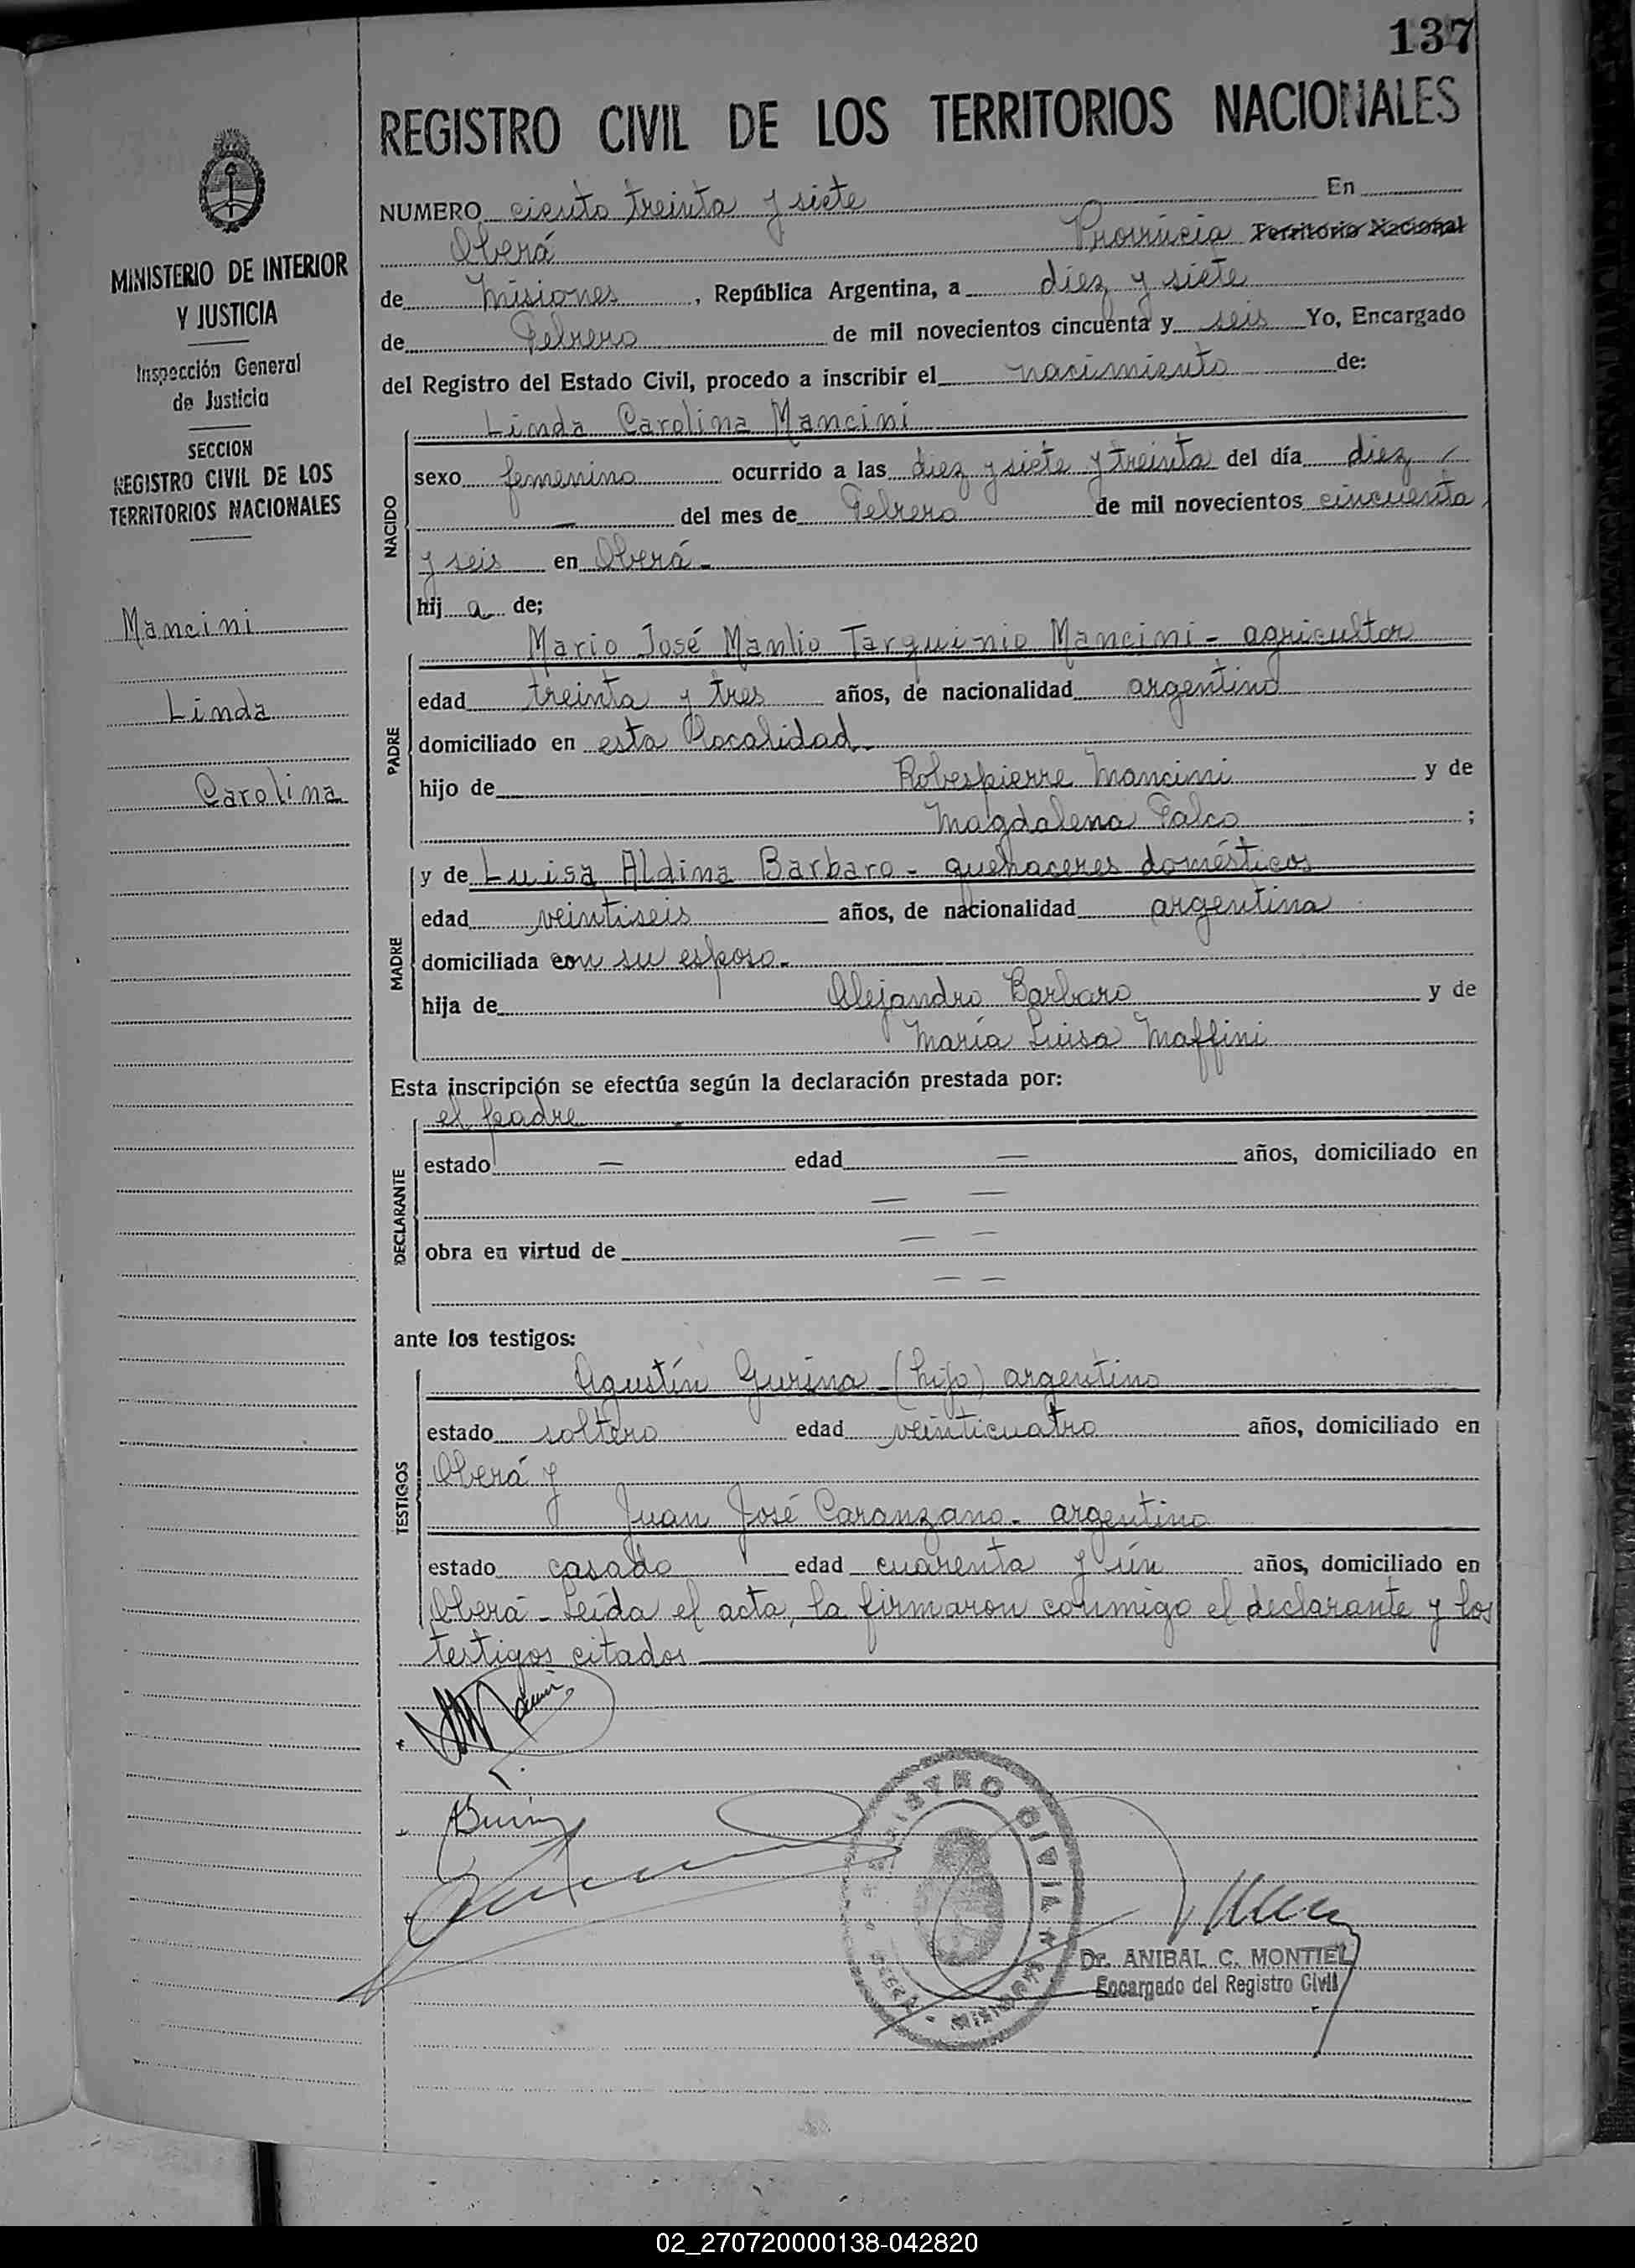 137
REGISTRO CIVIL DE LOS TERRITORIOS NACIONALES
MINISTERIO DE INTERIOR
Y JUSTICIA
Inspección General
de Justicia
SECCION
REGISTRO CIVIL DE LOS
TERRITORIOS NACIONALES
Mancini
Linda
Carolina
NUMERO ciento treinta y siete En
Oberá Provincia Territorio Nacional
de Misiones, República Argentina, a diez y siete
de Febrero de mil novecientos cincuenta y seis Yo, Encargado
del Registro del Estado Civil, procedo a inscribir el nacimiento de:
NACIDO
Linda Carolina Mancini
sexo femenino ocurrido a las diez y siete y treinta del día diez
— del mes de Febrero de mil novecientos cincuenta
y seis en Oberá-
hij a de;
PADRE
Mario José Manlio Tarquinio Mancini - agricultor
edad treinta y tres años, de nacionalidad argentino
domiciliado en esta localidad-
hijo de Robespierre Mancini y de
Magdalena Falco ;
MADRE
y de Luisa Aldina Barbaro - quehaceres domésticos
edad veintiseis años, de nacionalidad argentina
domiciliada con su esposo-
hija de Alejandro Barbaro y de
María Luisa Maffini
Esta inscripción se efectúa según la declaración prestada por:
DECLARANTE
el padre
estado — edad — años, domiciliado en
— —
obra en virtud de — —
— —
ante los testigos:
TESTIGOS
Agustín Gurina - (hijo) argentino
estado soltero edad veinticuatro años, domiciliado en
Oberá y
Juan José Caranzano - argentino
estado casado edad cuarenta y ún años, domiciliado en
Oberá - Leída el acta, la firmaron conmigo el declarante y los
testigos citados
REGISTRO CIVIL
MISIONES
Dr. ANIBAL C. MONTIEL
Encargado del Registro Civil
02_270720000138-042820